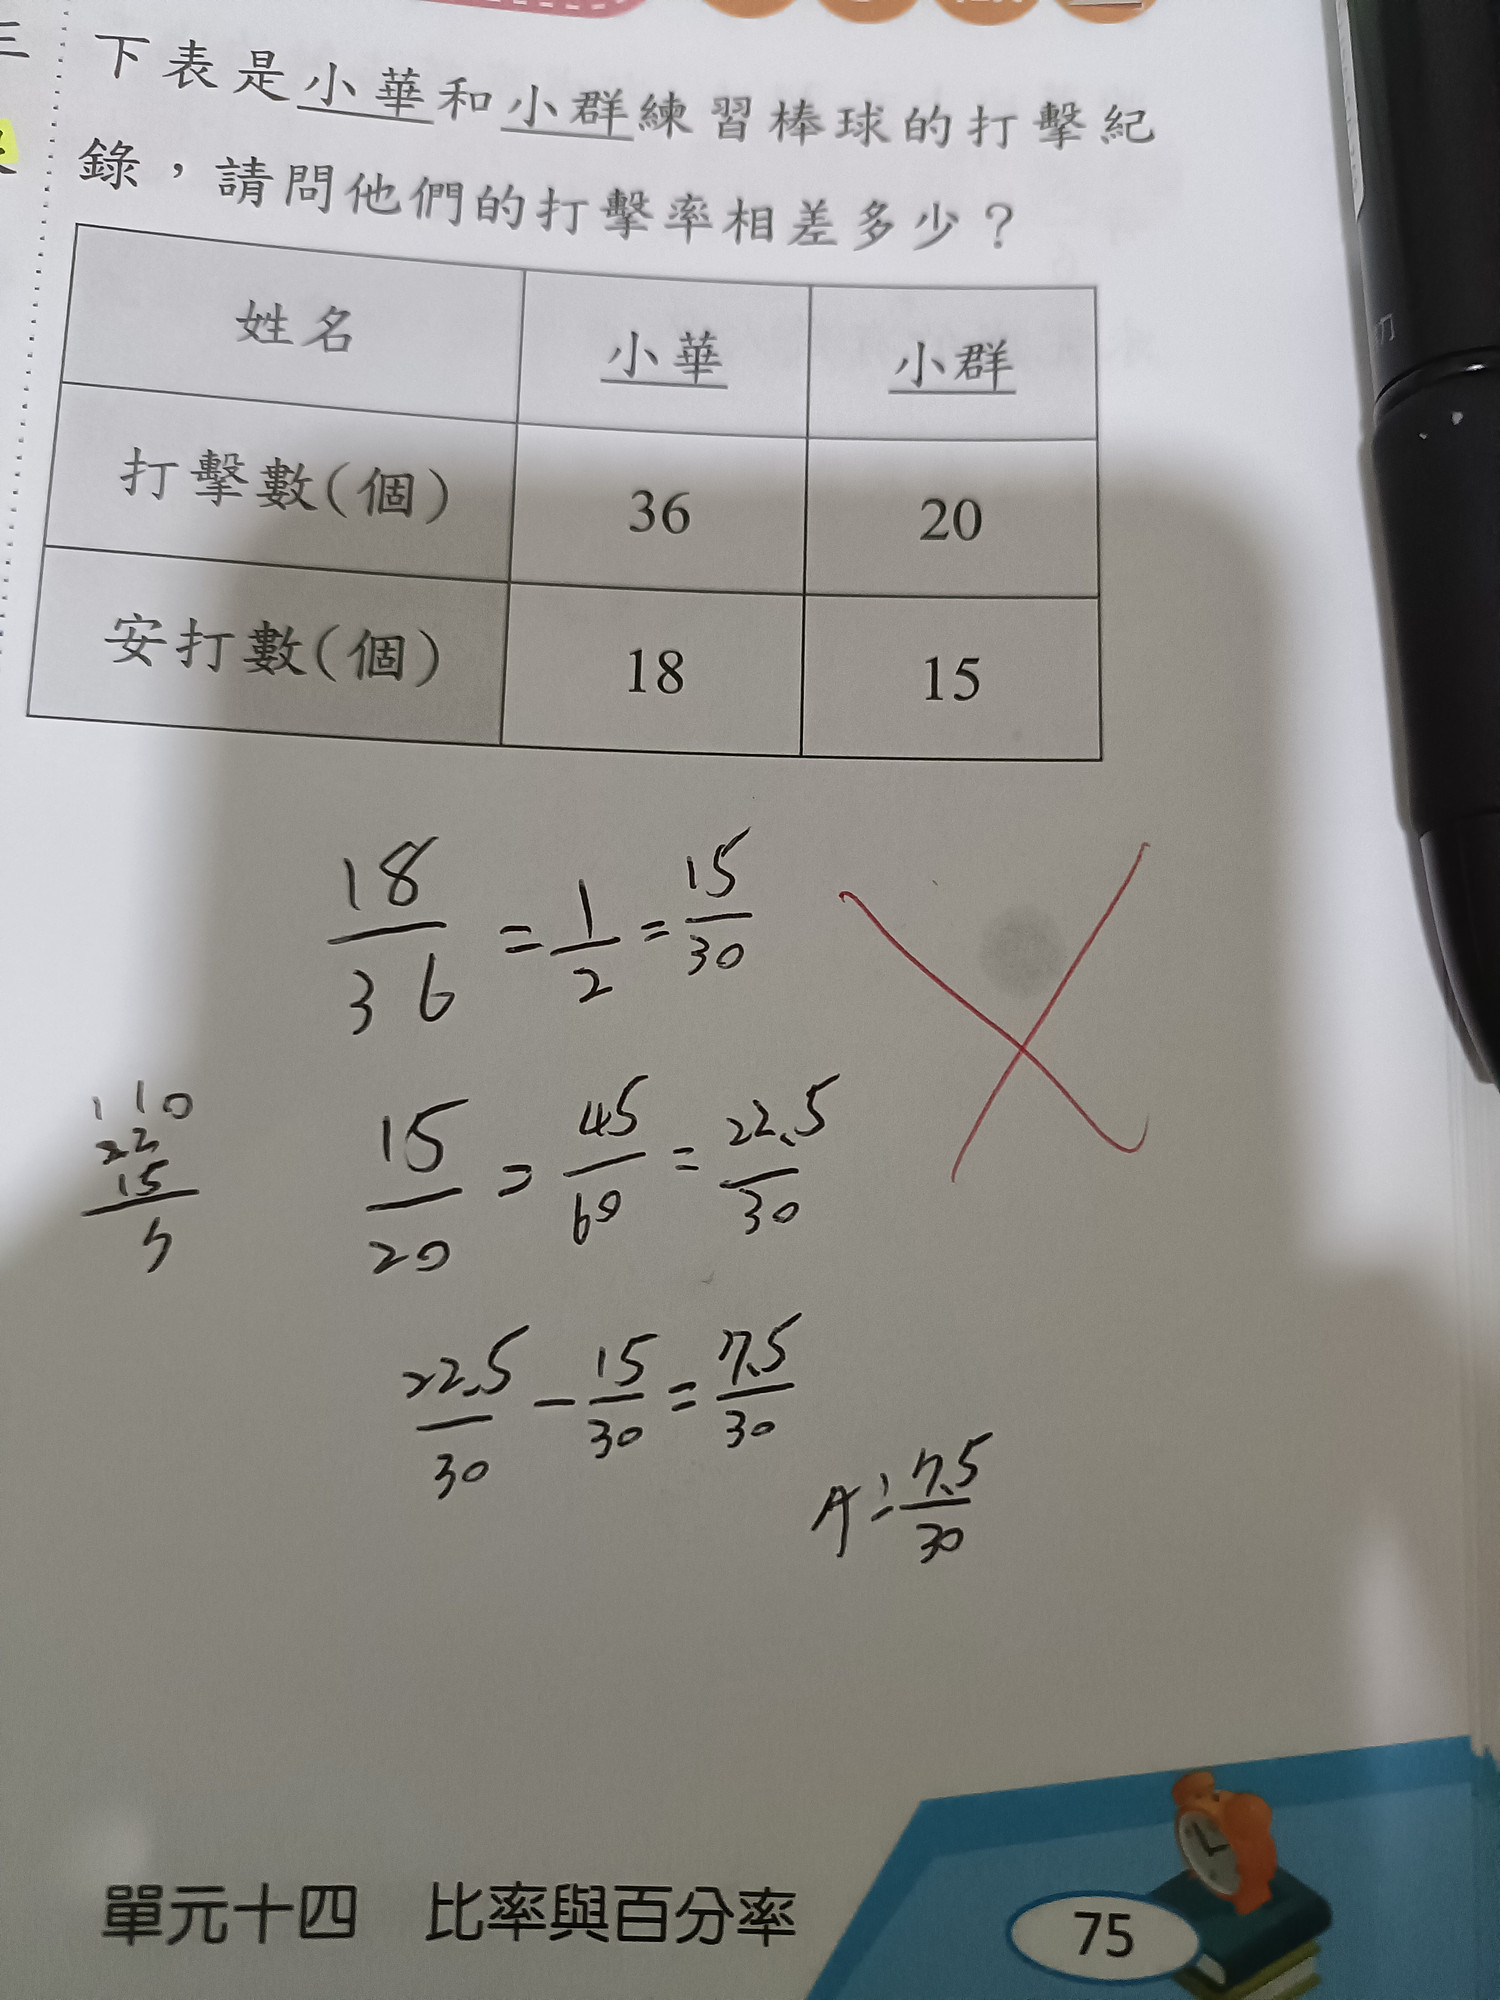 三
下表是小華和小群練習棒球的打擊紀
錄，請問他們的打擊率相差多少？
姓名 小華 小群
打擊數(個) 36 20
安打數(個) 18 15
18/36 = 1/2 = 15/30
1 10
22
15
15/20 = 45/60 = 22.5/30
22.5/30 - 15/30 = 7.5/30
A: 7.5/30
單元十四 比率與百分率
75